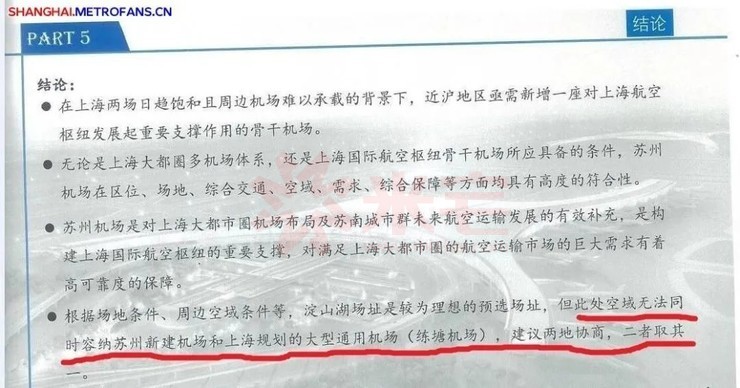 SHANGHAI.METROFANS.CN
PART 5
结论
结论：
● 在上海两场日趋饱和且周边机场难以承载的背景下，近沪地区亟需新增一座对上海航空
枢纽发展起重要支撑作用的骨干机场。
● 无论是上海大都圈多机场体系，还是上海国际航空枢纽骨干机场所应具备的条件，苏州
机场在区位、场地、综合交通、空域、需求、综合保障等方面均具有高度的符合性。
● 苏州机场是对上海大都市圈机场布局及苏南城市群未来航空运输发展的有效补充，是构
建上海国际航空枢纽的重要支撑，对满足上海大都市圈的航空运输市场的巨大需求有着
高可靠度的保障。
● 根据场地条件、周边空域条件等，淀山湖场址是较为理想的预选场址，但此处空域无法同
时容纳苏州新建机场和上海规划的大型通用机场（练塘机场），建议两地协商，二者取其
一。